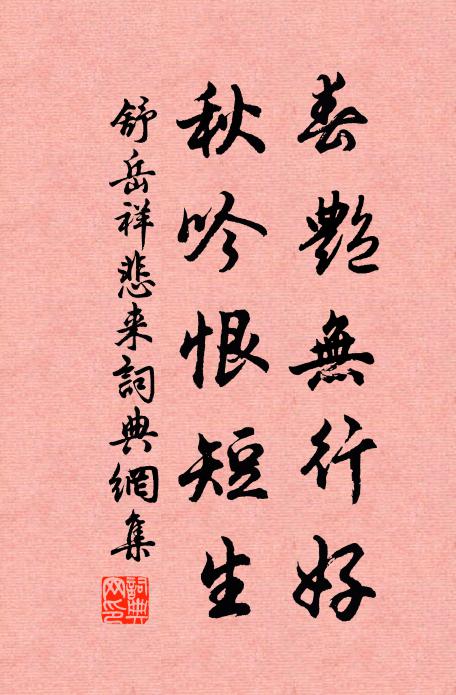 春艷無行好
秋吟恨短生
舒岳祥悲来詞典網集
詞典网印